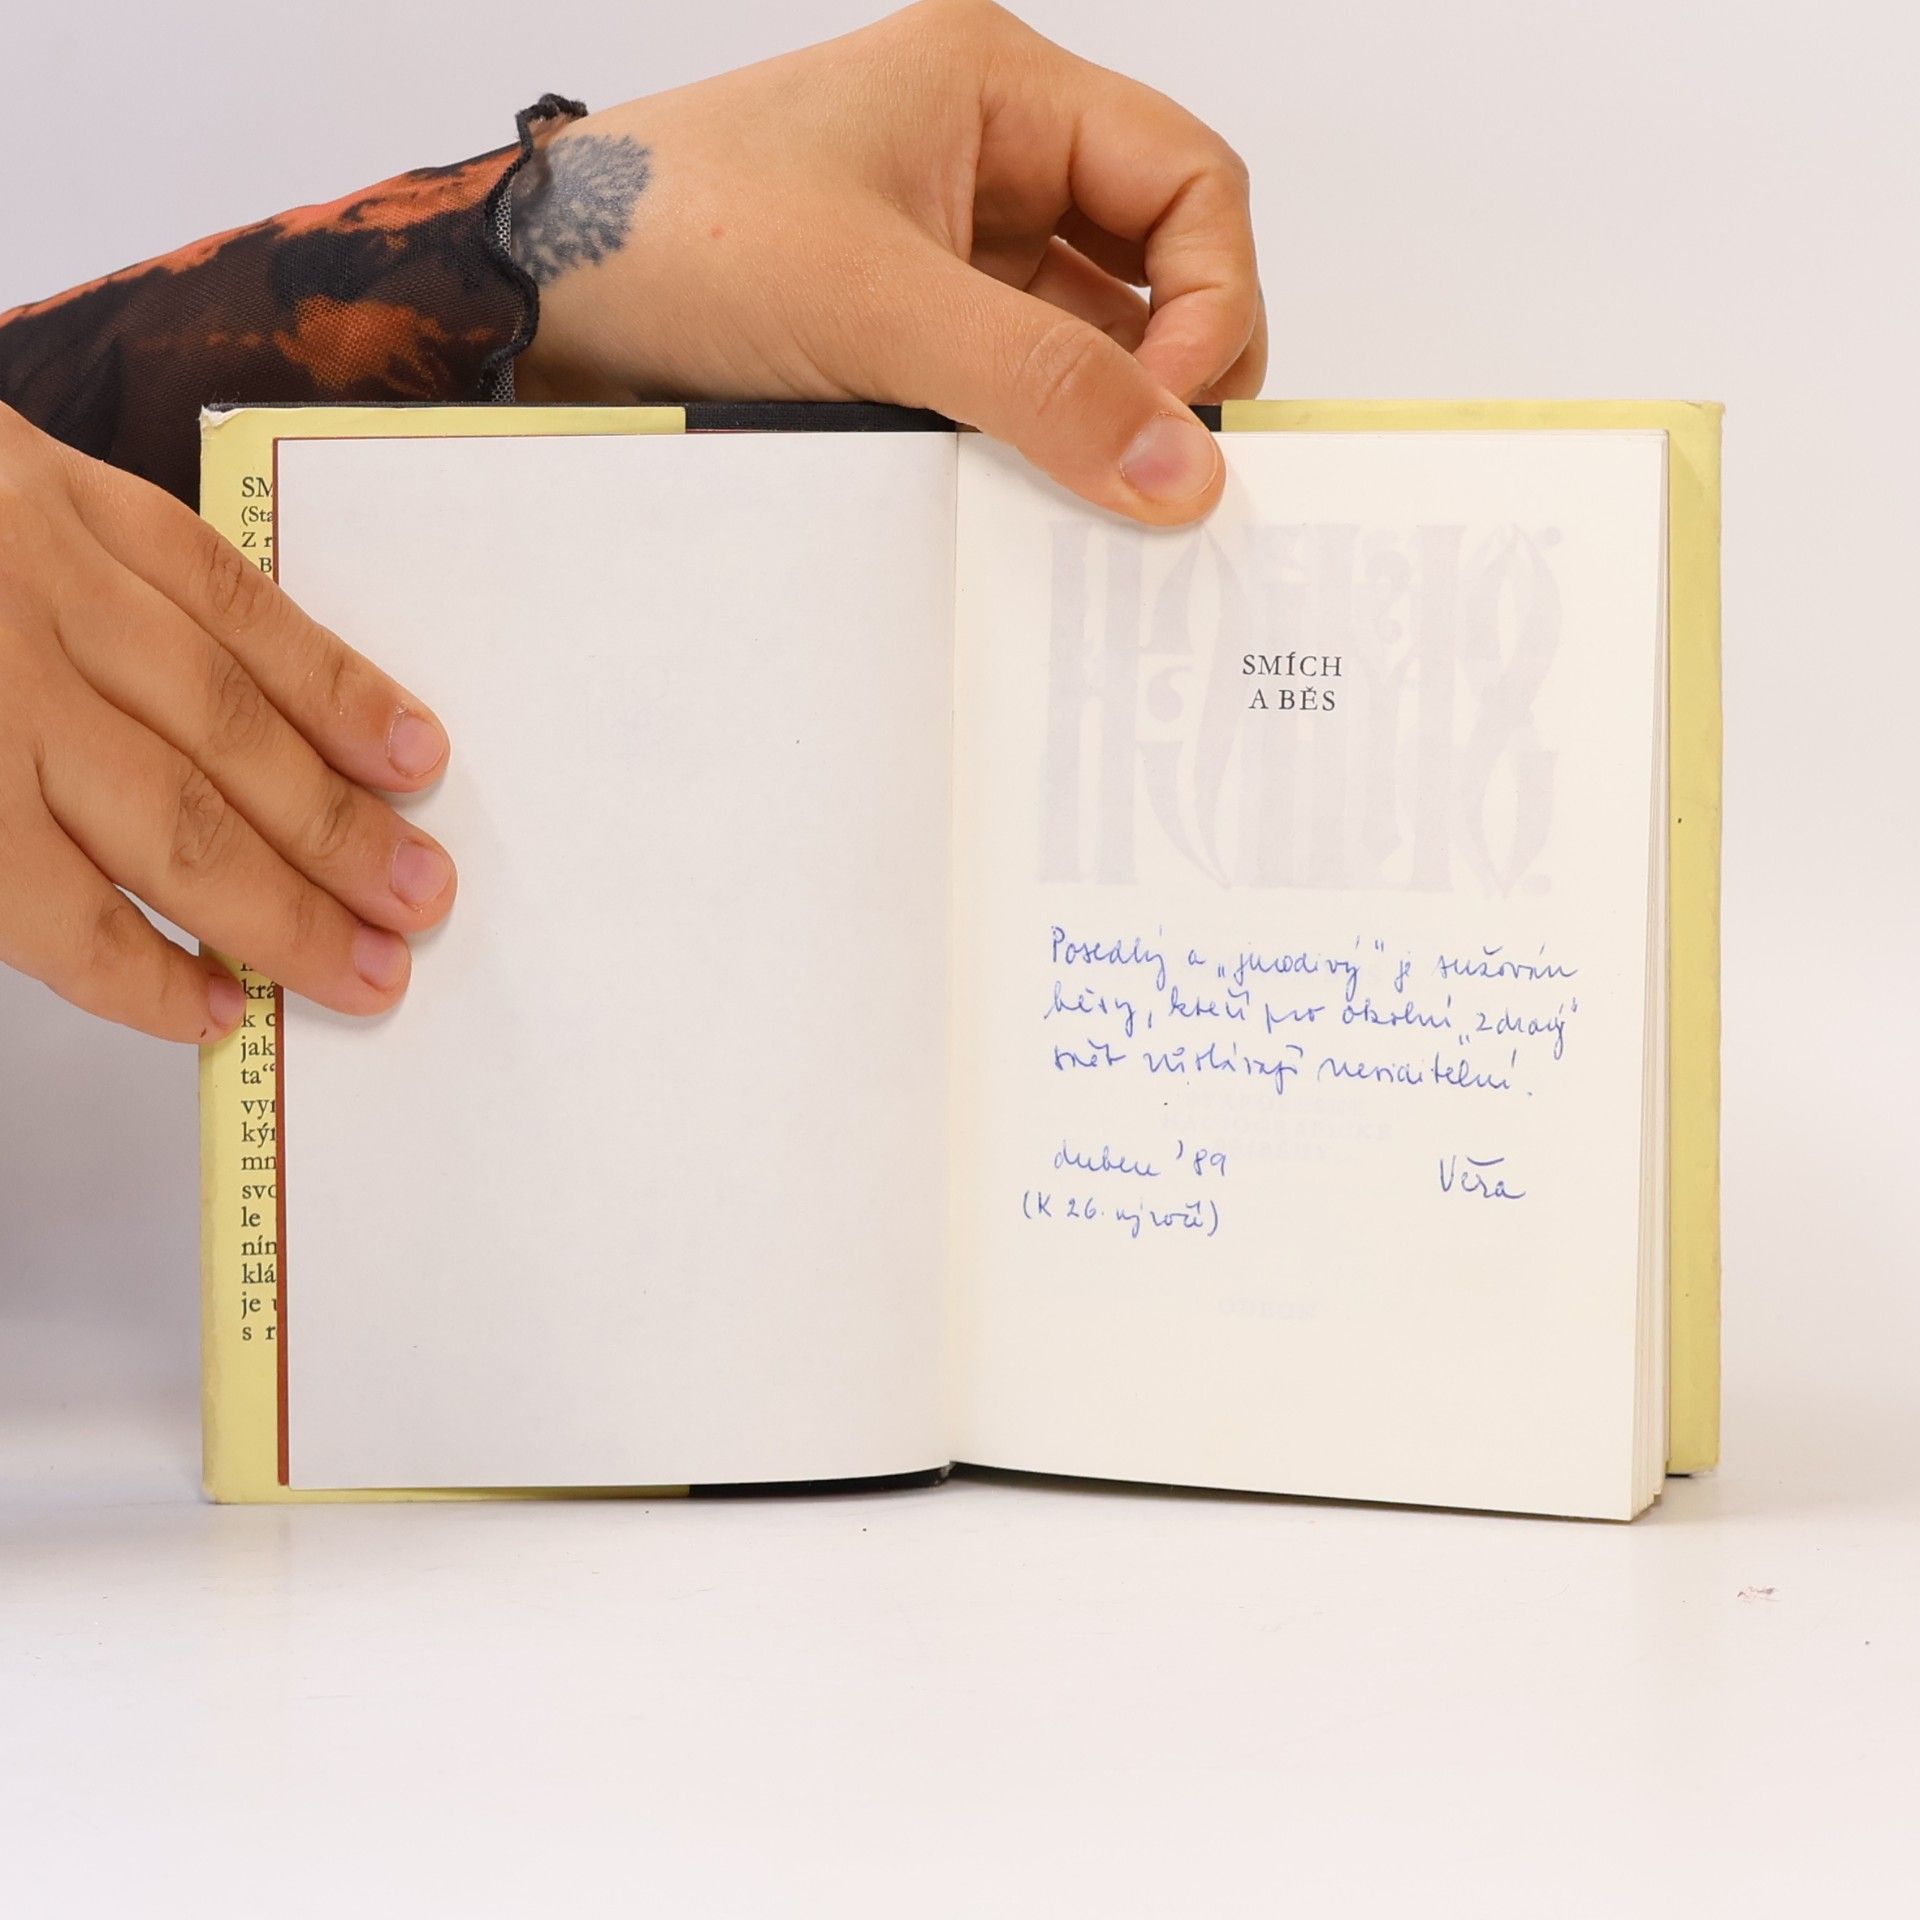 SM
(Sta
Z r
B
krá
k c
jak
ta“
vyr
kýr
mn
svo
le
nín
klá
je u
s r
SMÍCH
A BĚS
Posedlý a „jurodivý“ je sužován
běsy, kteří pro okolní „zdravý“
svět zůstávají neviditelní.
duben '89
Věra
(K 26. výročí)
ODEON